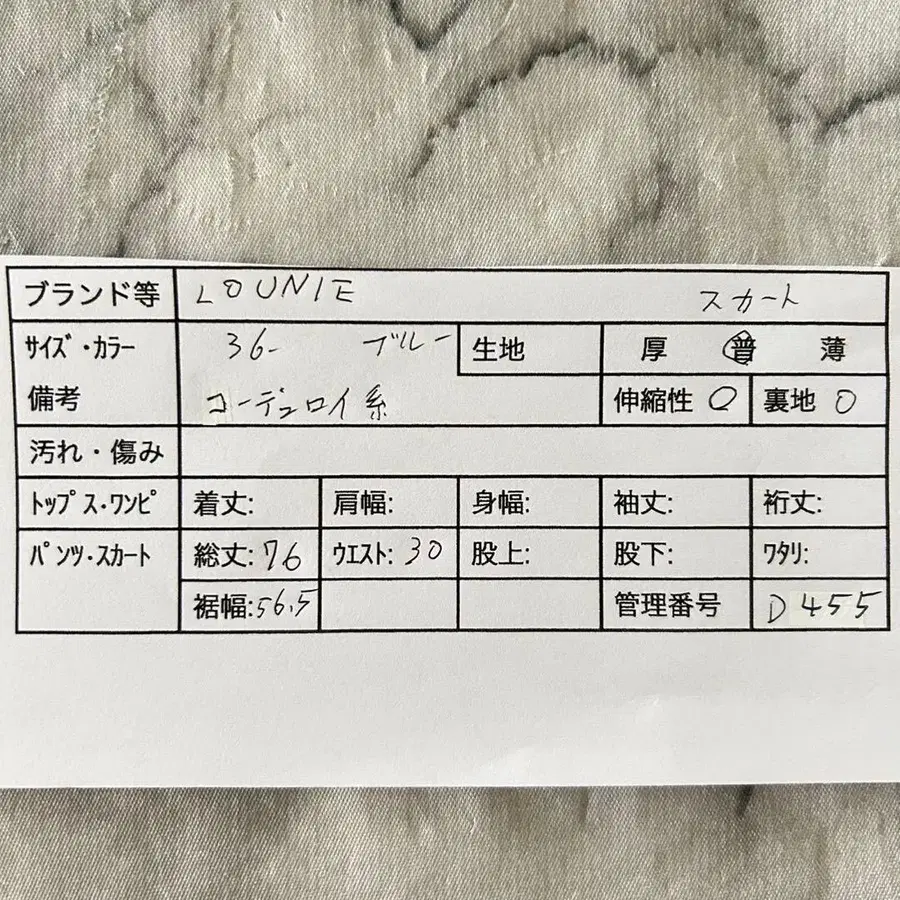 ブランド等 LOUNIE スカート
サイズ・カラー 36- ブルー 生地 厚 普 薄
備考 コーデュロイ系 伸縮性 ○ 裏地 ○
汚れ・傷み
トップス・ワンピ 着丈: 肩幅: 身幅: 袖丈: 裄丈:
パンツ・スカート 総丈:76 ウエスト:30 股上: 股下: ワタリ:
裾幅:56.5 管理番号 D455